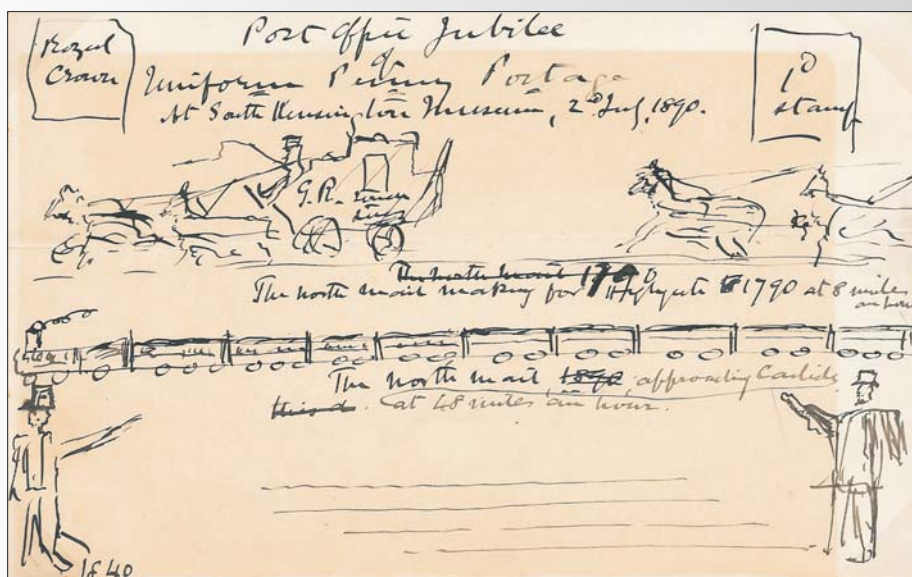 Royal
Crown
Post Office Jubilee
of
Uniform Penny Postage
At South Kensington Museum, 2d July, 1890.
1d
stamp
G.R.
The North Mail 1790
The north mail making for Highgate 1790 at 8 miles
an hour
The north mail 1890 approaching Carlisle
at 48 miles an hour.
1840